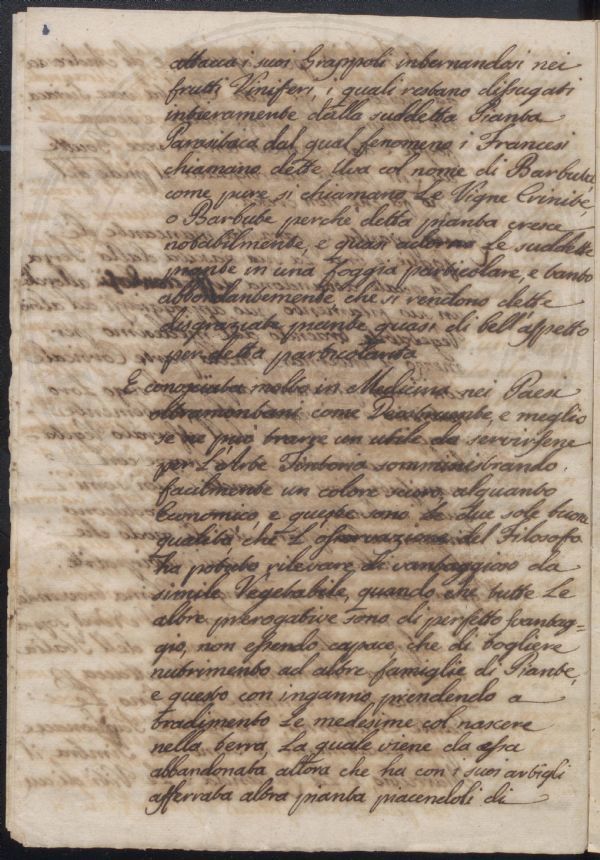 attacca i suoi Grappoli inbernandosi nei
frutti Viniferi, i quali restano dissugati
intieramente dalla suddetta Pianta
Parasitaca dal qual fenomeno i Francesi
chiamano dette Uva col nome di Barbuta,
come pure si chiamano Le Vigne Crinite,
o Barbute perchè detta pianta cresce
notabilmente, e quasi adorna Le suddette
piante in una foggia particolare, e tanto
abbondantemente, che si rendono dette
disgraziate piante quasi di bell'aspetto
per detta particolarità
E conosciuta molto in Medicina nei Paesi
oltramontani come e meglio
se ne può trarre un utile da servirsene
per L'Arte Tintoria somministrando
facilmente un colore scuro alquanto
Economico, e queste sono Le due sole buone
qualità che L'osservazione del Filosofo
ha potuto rilevare di vantaggioso da
simile Vegetabile, quando che tutte Le
altre prerogative sono di perfetto svantag=
gio, non essendo capace che di togliere
nutrimento ad altre famiglie di Piante,
e questo con inganno prendendo a
tradimento Le medesime col nascere
nella terra, La quale viene da essa
abbandonata allora che ha con i suoi artigli
afferrata altra pianta piacendoli di